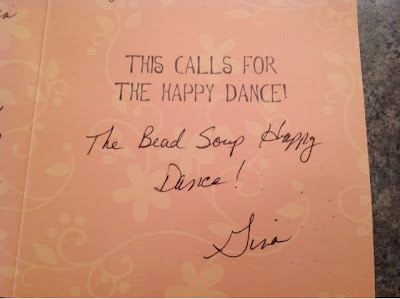 THIS CALLS FOR
THE HAPPY DANCE!
The Bead Soup Happy
Dance!
Gina